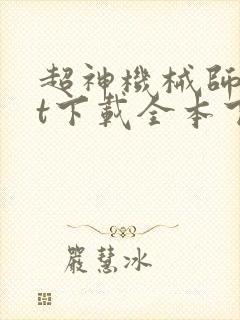 超神機械師
t下載全本
嚴慧冰